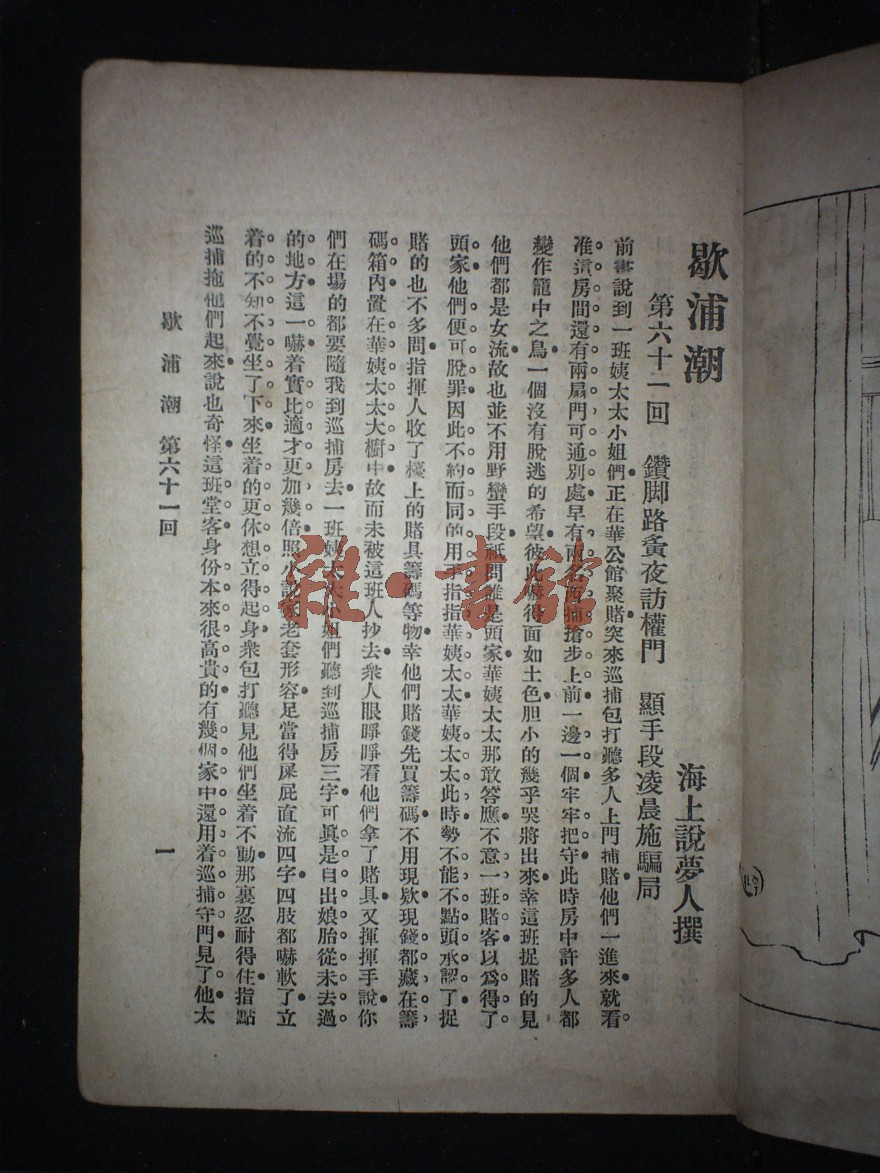 歇浦潮
海上說夢人撰
第六十一回　鑽脚路黃夜訪權門　顯手段凌晨施騙局
前書說到一班姨太太小姐們正在華公館聚賭突來巡捕包打聽多人上門捕賭他們一進來就看
准這房間還有兩扇門可通別處早有兩名西捕搶步上前一邊一個牢牢把守此時房中許多人都
變作籠中之鳥一個沒有脫逃的希望彼此嚇得面如土色胆小的幾乎哭將出來幸這班捉賭的見
他們都是女流故也並不用野蠻手段祇問誰是頭家華姨太太那敢答應不意一班賭客以爲得了
頭家他們便可脫罪因此不約而同的用手指指華姨太太華姨太太此時勢不能不點頭承認了捉
賭的也不多問指揮人收了檯上的賭具籌碼等物幸他們賭錢先買籌碼不用現欵現錢都藏在籌
碼箱內置在華姨太太大櫥中故而未被這班人抄去衆人眼睜睜看他們拿了賭具又揮揮手說你
們在場的都要隨我到巡捕房去一班姨太太小姐們聽到巡捕房三字可眞是自出娘胎從未去過
的地方這一嚇着實比適才更加幾倍照小說家老套形容足當得屎屁直流四字四肢都嚇軟了立
着的不知不覺坐了下來坐着的更休想立得起身衆包打聽見他們坐着不動那裏忍耐得住指點
巡捕拖他們起來說也奇怪這班堂客身份本來很高貴的有幾個家中還用着巡捕守門見了他太
歇浦潮　第六十一回
一
雜·書館